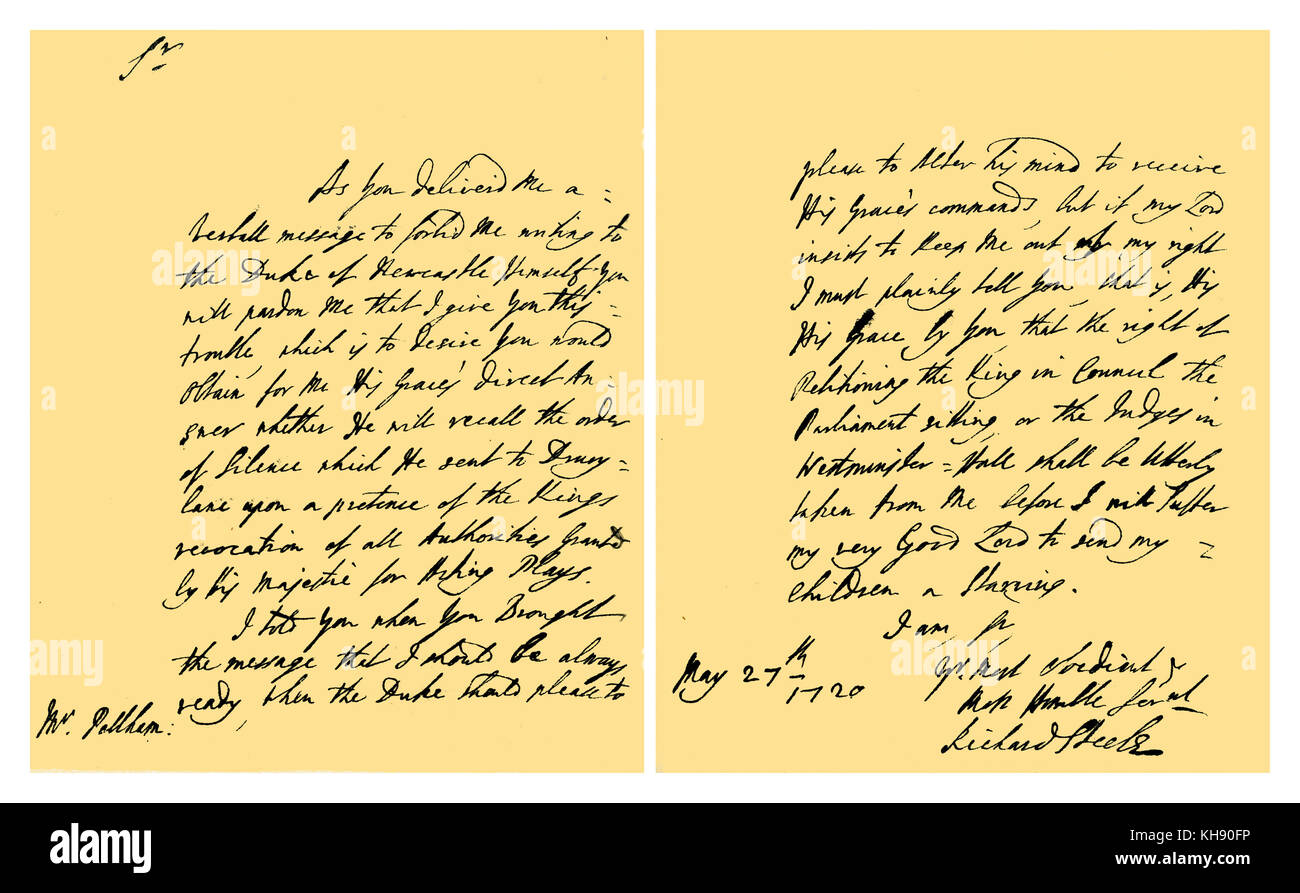 Sr
As You deliverd Me a =
verball message to forbid Me writing to
the Duke of Newcastle Himself You
will pardon Me that I give You this =
trouble, which is to desire You would
Obtain for Me His Grace's direct An -
swer whether He will recall the order
of Silence which He sent to Drury =
lane upon a pretence of the Kings
revocation of all Authorities Granted
by His Majestie for Acting Plays.
I told You when You Brought
the message that I should be always
ready, when the Duke should please to
Mr. Pellham:
please to Alter his mind to receive
His Grace's commands, but if my Lord
insists to keep Me out of my right
I must plainly tell You, that is, His
His Grace by You, that the right of
Petitioning the King in Council the
Parliament sitting, or the Judges in
Westminster = Hall shall be Utterly
taken from Me before I will suffer
my very Good Lord to send my =
children a Starving.
I am, Sr
Yr. Most Obedient &
Most Humble Servnt
Richard Steele
May 27th
1720
a alamy
alamy
a
alamy
www.alamy.com
Image ID: KH90FP
KH90FP